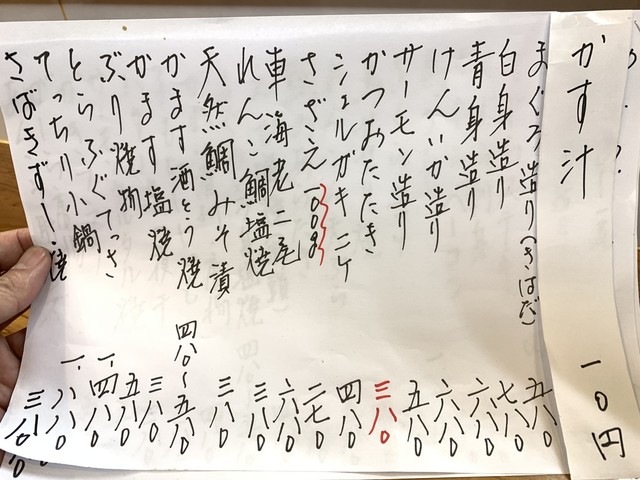 かす汁 一0円
まぐろ造り(きはだ) 五八0
白身造り 七八0
青身造り 六八0
けんいか造り 六八0
サーモン造り 五八0
かつおたたき 三八0
シェルガキ二ケ 四八0
さざえ一00g 二七0
車海老二尾 六八0
れんこ鯛塩焼 三八0
天然鯛みそ漬 三八0
かます酒とう焼 四八0～五八0
かます塩焼 三八0
ぶり焼物 五八0
とらふぐてっさ 一、四八0
てっちり小鍋 一、八八0
さばきずし・焼 三八0